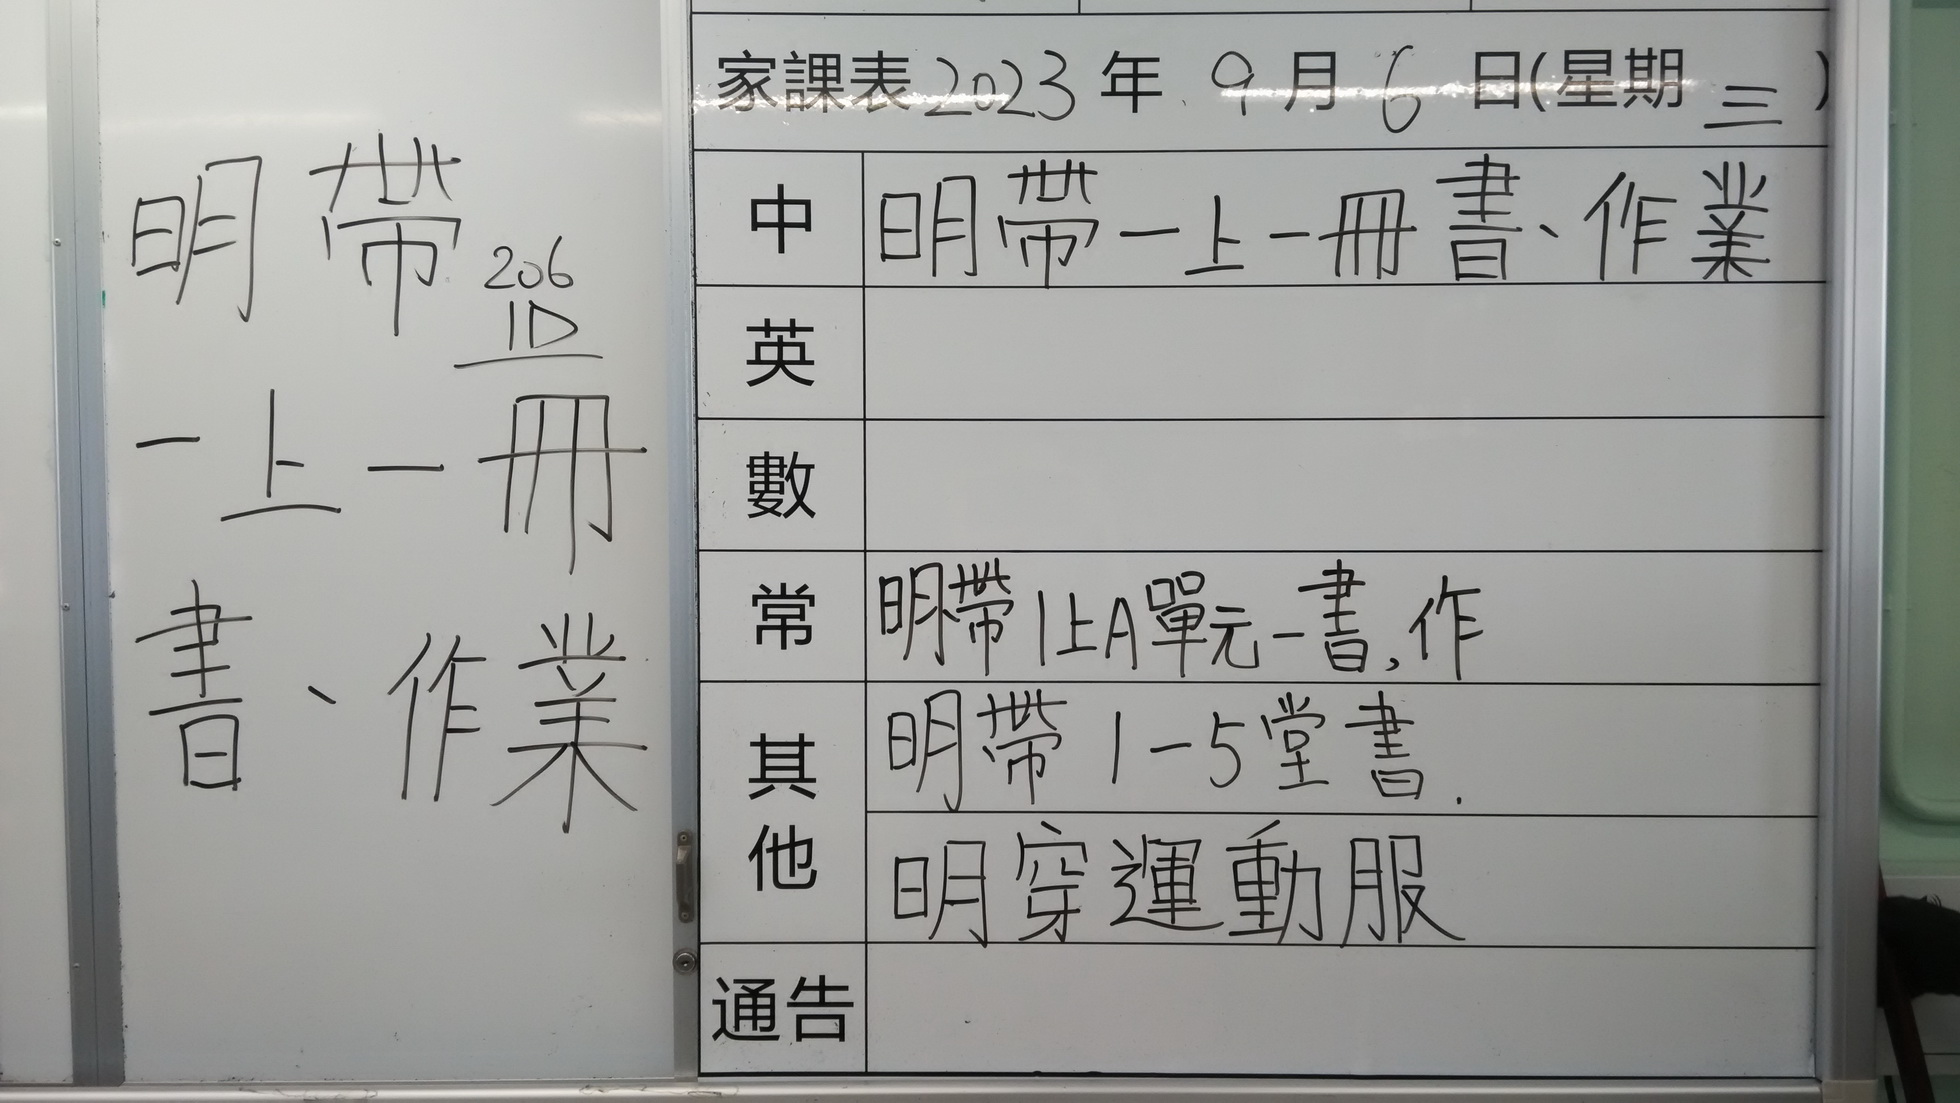 明帶
206
1D
一上一冊
書、作業
家課表2023年9月6日(星期三)
中 明帶一上一冊書、作業
英
數
常 明帶1上A單元一書,作
其他 明帶1-5堂書.
明穿運動服
通告